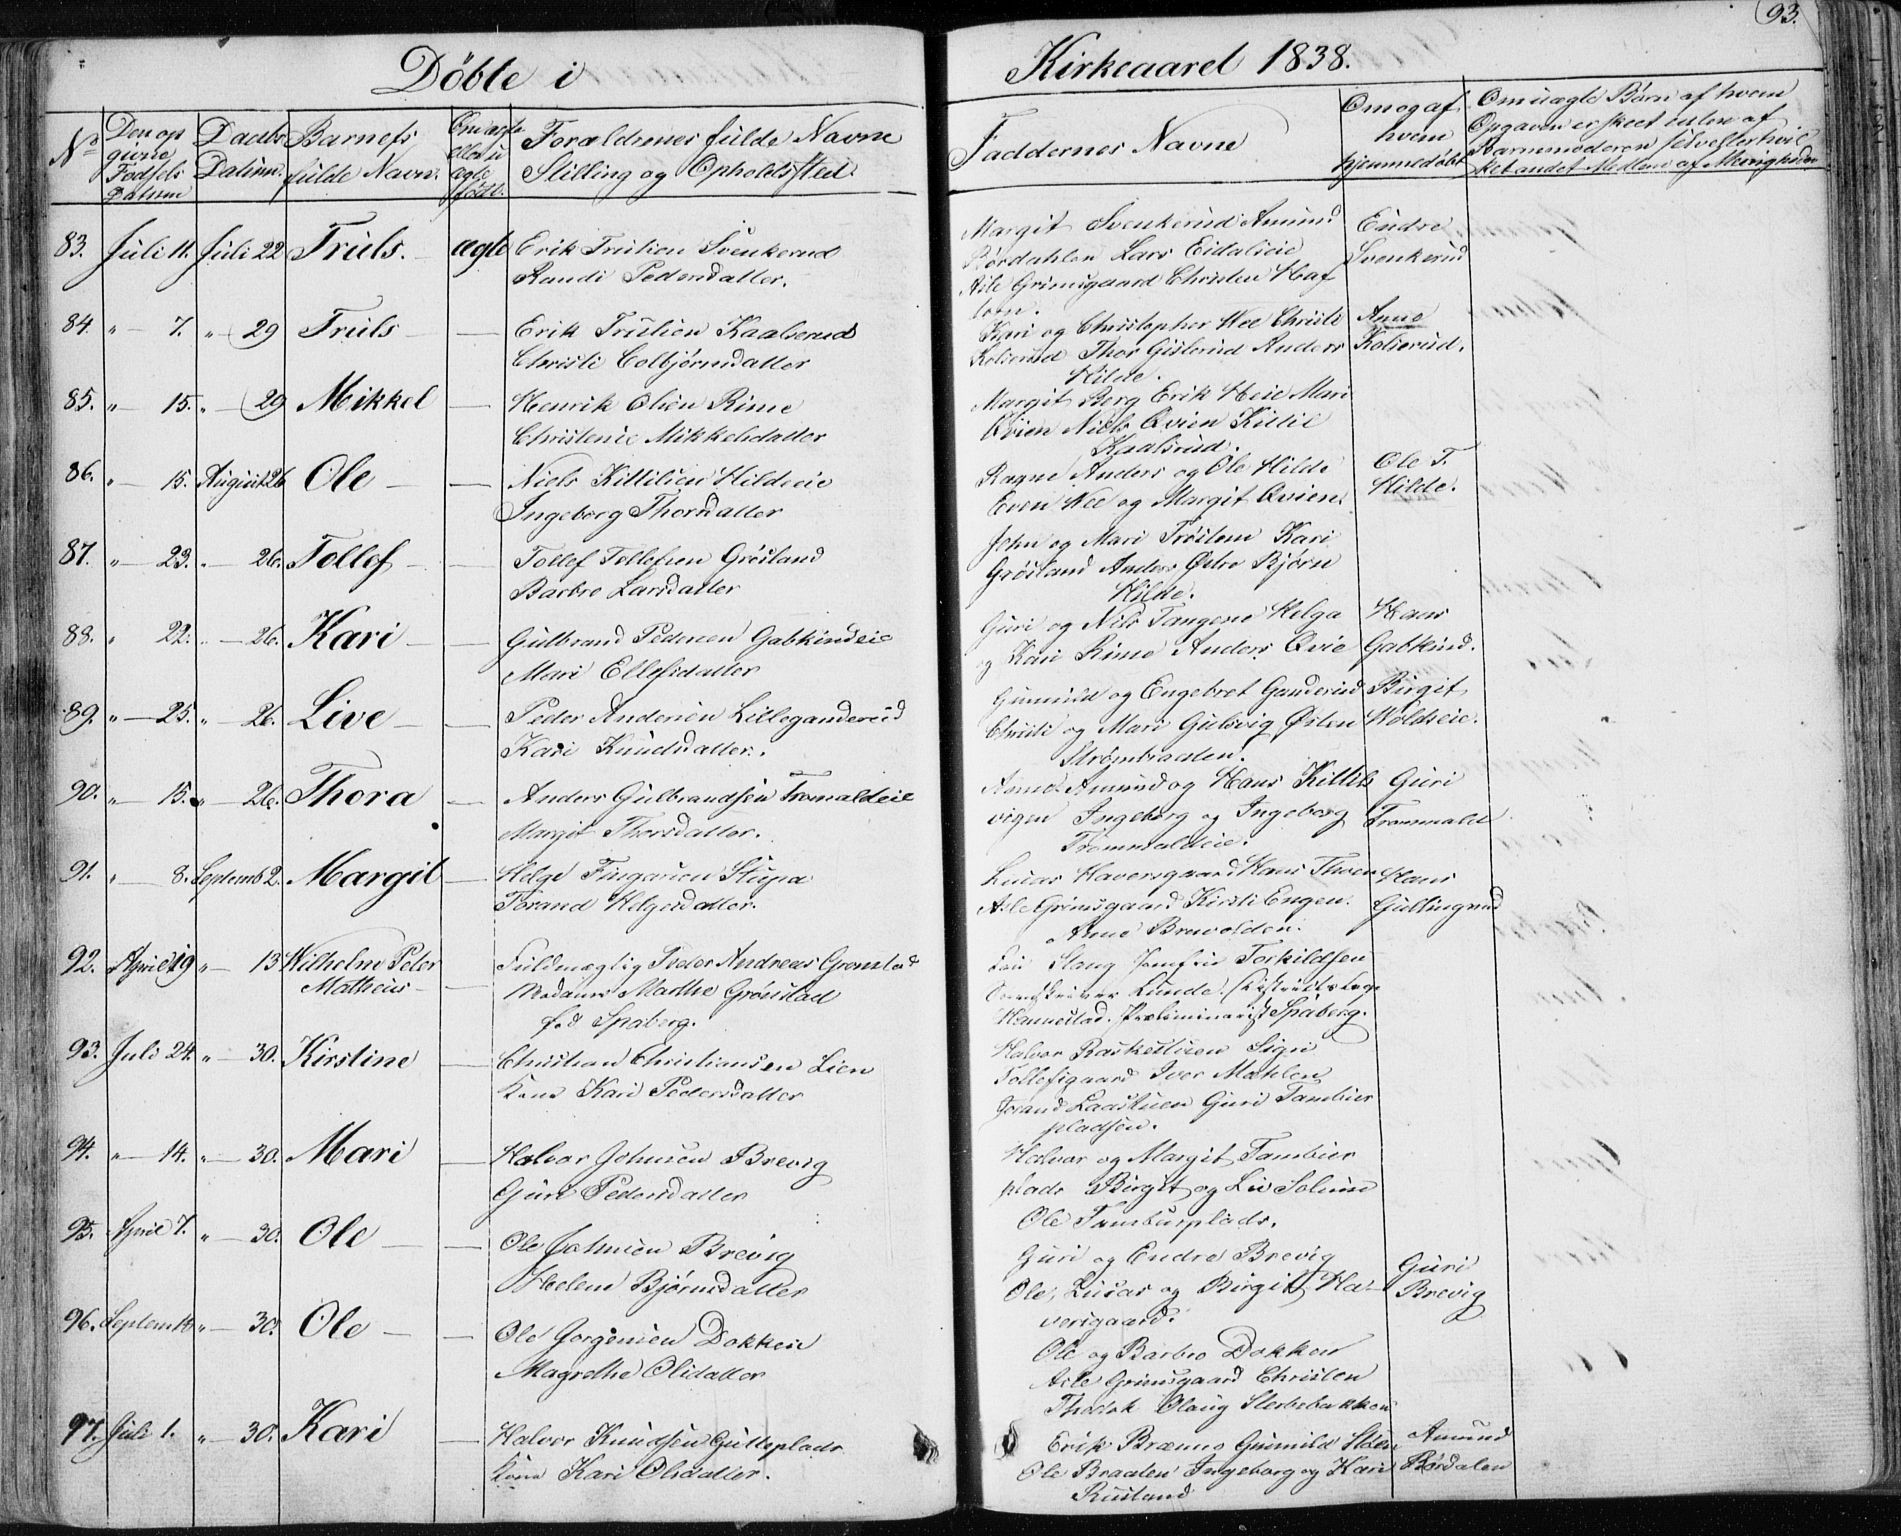 93.
Döbte i Kirkeaaret 1838.
No
Den op
givne
Födsels
Datum
Daabs
Datum.
Barnets
fulde Navn.
Om ægte
eller u
ægte
född.
Forældrenes fulde Navne
Stilling og Opholdssted.
Faddernes Navne
Om og af
hvem
hjemmedøbt
Om uægte Børn af hvem
Opgaven er skeet enten af
Barnmoderen selv eller hvil
ket andet Medlem af Menigheden
83. Juli 11. Juli 22 Truls. ægte Erik Trulsen Svenkerud
Randi Pedersdatter.
Margit Svenkerud Amund
Børdahlen Lars Eidalseie
Asle Grimsgaard Christen Haf
torn.
Endre
Svenkerud
84. " 7. " 29 Truls — Erik Trulsen Kaalserud
Christi Colbjørnsdatter
Kari og Christopher Wee Christi
Kolserud Thor Gislerud Anders
Hilde.
Anne
Kolserud.
85. " 15. " 29 Mikkel — Henrik Olsen Rime
Christense Mikkelsdatter
Margit Berg Erik Heie Mari
Qvien Niels Qvien Kittil
Kaalsrud.
86. " 15. August 26 Ole — Niels Kittilsen Hildseie
Ingeborg Thorsdatter
Ragne Anders og Ole Hilde
Even Wee og Margit Qvien.
Ole T.
Hilde.
87. " 23. " 26. Tollef — Tollef Tollefsen Grösland
Barbro Larsdatter
John og Mari Tröstem Kari
Grösland Anders Østro Bjørn
Hilde.
88. " 22. " 26. Kari — Gulbrand Pedersen Gabkindeie
Mari Ellefsdatter
Guri og Nils Tangene Helga
og Kari Rime Anders Qvie
Hans
Gabkind.
89. " 25. " 26. Live — Peder Andersen Lilleganderud
Kari Knudsdatter.
Gunnild og Engebret Ganderud
Christi og Mari Gulsvig Østen
Strømbraaten.
Birgit
Woldseie.
90. " 15. " 26. Thora — Anders Gulbrandsen Tromaldeie
Margit Thorsdatter.
Anne Amund og Hans Kittils
vigen Ingeborg og Ingeborg
Trommaldeie.
Guri
Trommald
91. " 8. Septemb 2. Margit — Helge Fingarsen Stupa
Torand Helgesdatter.
Lucas Haversgaard Hans Thoen
Asle Grimsgaard Kirsti Engen.
Anne Brevolden.
Hans
Gullingrud
92. April 19 " 13 Wilhelm Peter
Matheus — Fuldmægtig Peder Andreas Gromstad
Madame Marthe Grönstad
fød Spaberg.
Slang Jomfru Torkildsen
Lunde.
Hannestad. Præliminarist Spaberg.
93. Juli 24. " 30. Kirstine — Christian Christiansen Lien
Kone Kari Pedersdatter
Halvor Sigri
Tollefsgaard Iver Mæhlen
Jorand Laastuen Guri Tambur
pladsen.
94. " 14. " 30. Mari — Halvor Johnsen Brevig
Guri Pedersdatter
Halvor og Margit Tambur
plads Birgit og Liv Solum
Ole Tamburplads.
95. April 7. " 30. Ole — Ole Johnsen Brevig
Helene Bjørnsdatter
Guri og Endre Brevig
Ole, Lucas og Birgit Ha-
versgaard.
Guri
Brevig
96. Septem 14 " 30. Ole — Ole Jorgensen Dokken
Magrethe Olsdatter
Ole og Barbro Dokken
Asle Grimsgaard Christen
Thodok Olaug Sterbebakken
97. Juli 1. " 30. Kari — Halvor Knudsen Gulleplads
Kone Kari Olsdatter.
Erik Brænno Gunnild Støen
Ole Braaten Ingeborg og Kari
Rusland
Amund
Børdalen